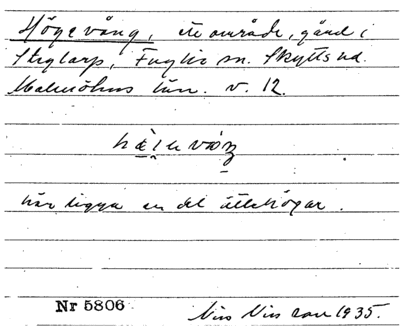 Högevång, ett område, gård i
Steglarp, Fuglie sn. Skytts hd.
Malmöhus län. v. 12.
här ligga en del ättehögar.
Nr 5806
Nils Nilsson 1935.